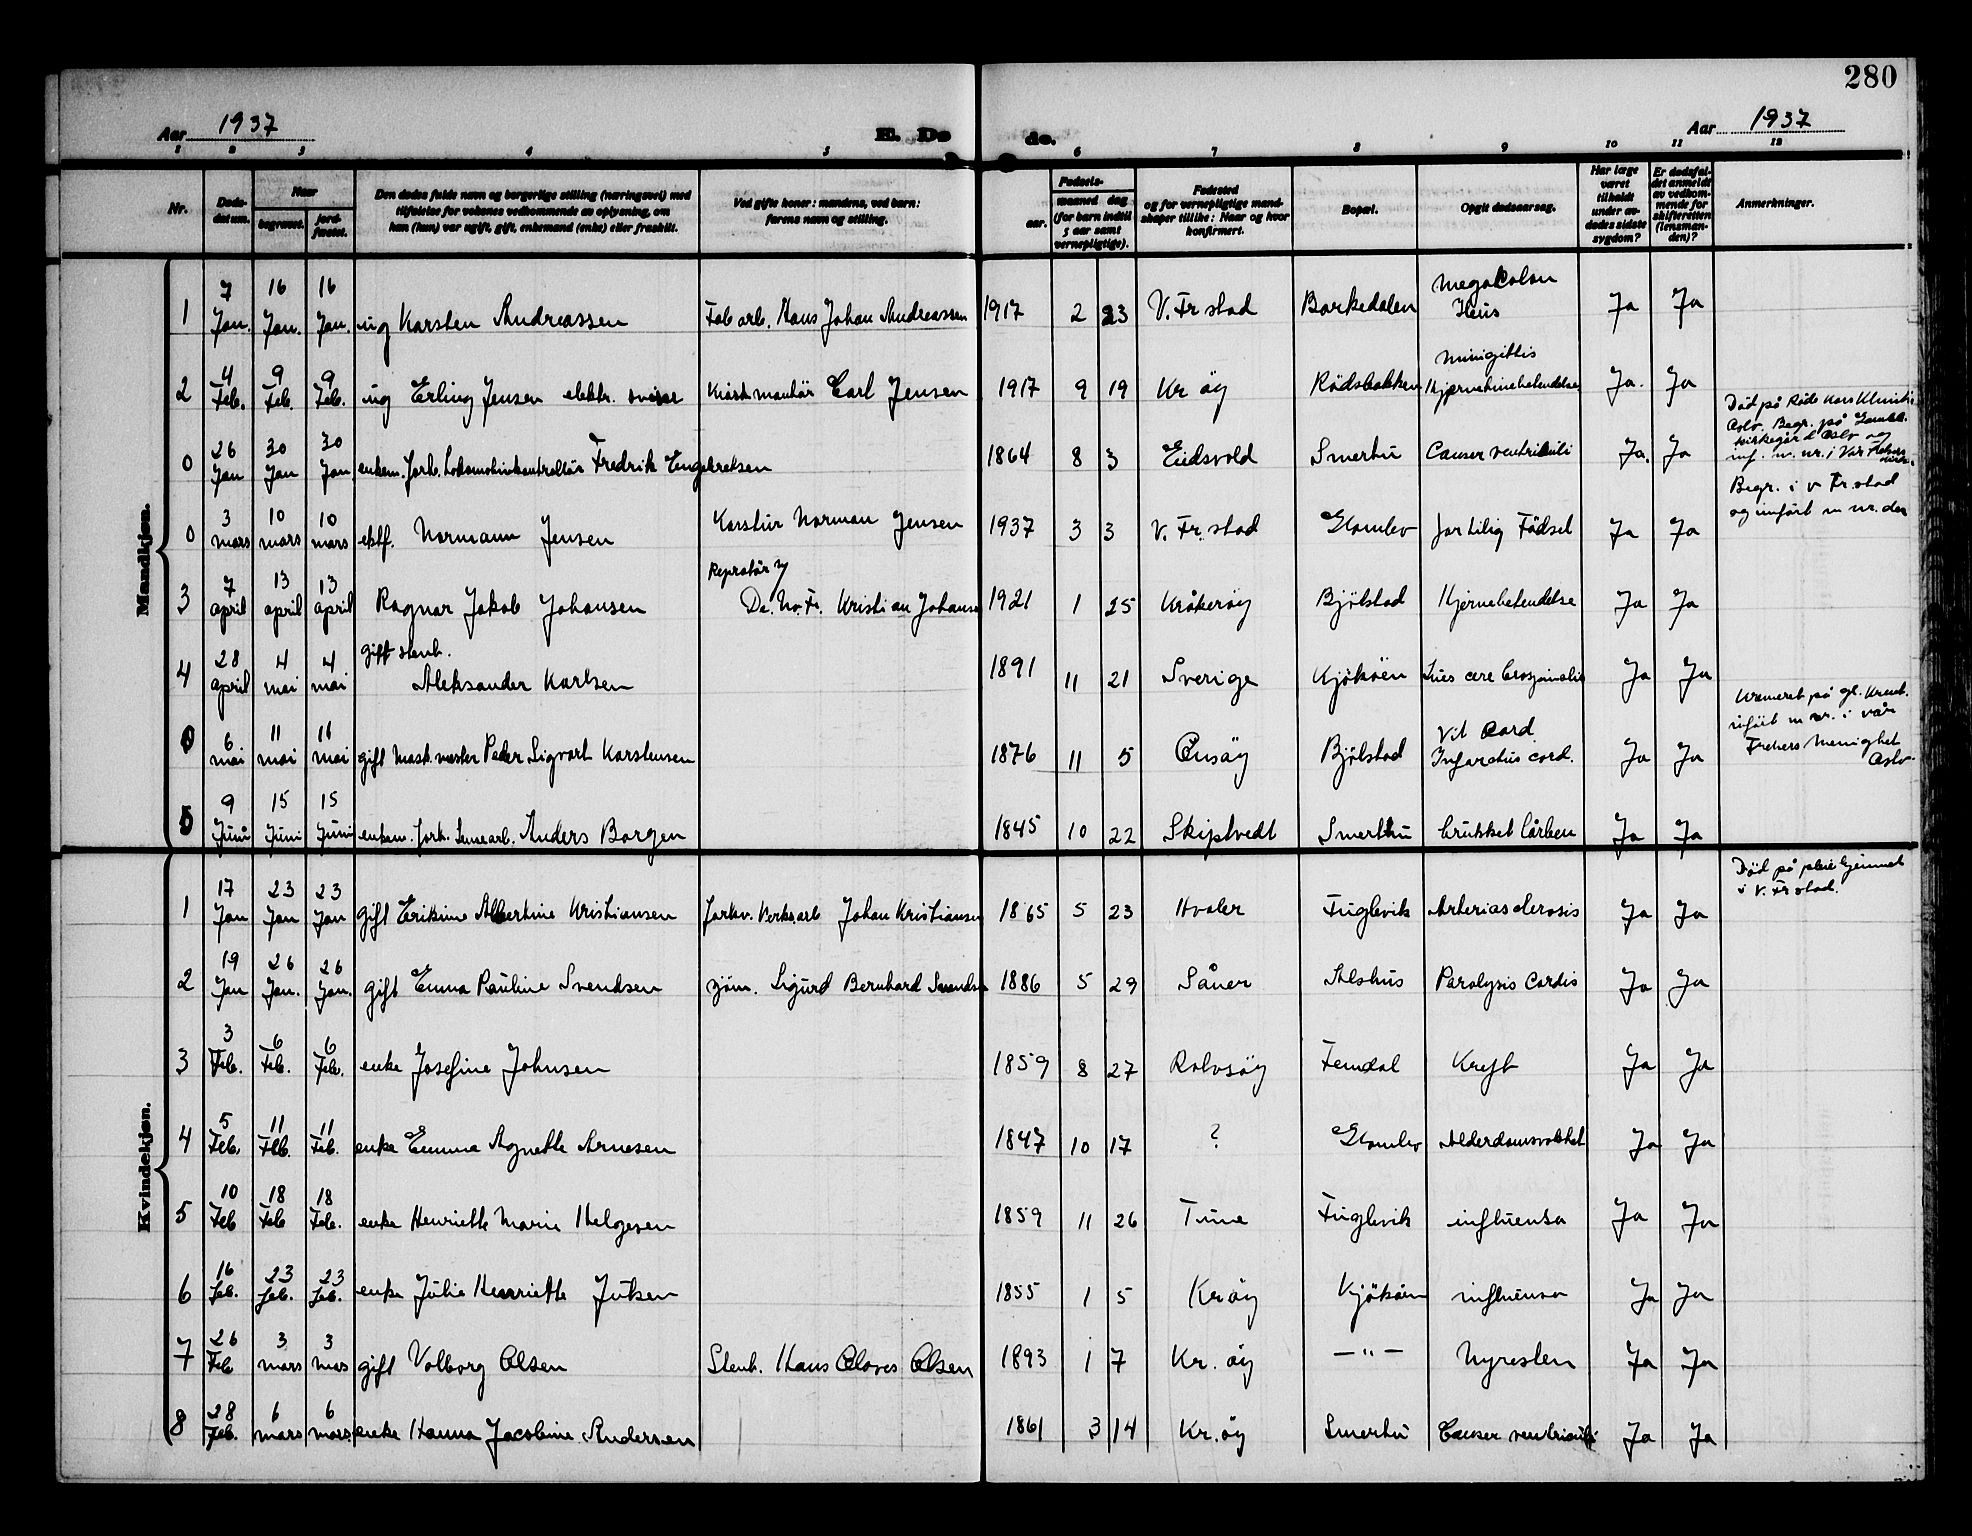 280
Aar 1937
E. Dø
de.
Aar 1937
1 2 3 4 5 6 7 8 9 10 11 12
Nr.
Døds-
datum.
Naar
begravet.
jord-
fæstet.
Den dødes fulde navn og borgerlige stilling (næringsvei) med
tilføielse for voksnes vedkommende av oplysning, om
han (hun) var ugift, gift, enkemand (enke) eller fraskilt.
Ved gifte koner: mandens, ved barn:
farens navn og stilling.
Fødsels-
aar.
maaned dag
(for barn indtil
5 aar samt
vernepligtige).
Fødested
og for vernepligtige mand-
skaper tillike: Naar og hvor
konfirmert.
Bopæl.
Opgit dødsaarsag.
Har læge
været
tilkaldt
under av-
dødes sidste
sygdom?
Er dødsfal-
det anmeldt
av vedkom-
mende for
skifteretten
(lensman-
den)?
Anmerkninger.
Mandkjøn.
1 7 Jan. 16 Jan. 16 Jan. ug Karsten Andreassen Fab arb. Hans Johan Andreassen 1917 2 23 V. Fr stad Barkedalen Megacolon Ileus Ja Ja
2 4 Feb. 9 Feb. 9 Feb. ug Erling Jensen elektr. sveiser Carl Jensen 1917 9 19 Kr øy Rødsbakken Minigittis Hjernehinebetendelse Ja. Ja
0 26 Jan 30 Jan 30 Jan enkem. forh. Lokomotivkontrollør Fredrik Engebretsen 1864 8 3 Eidsvold Smertu Cancer ventriculi Ja. Ja Død på Røde Kors Klinik Oslo. Begr. på Gamle kirkegård Oslo og inf. m. nr. i Vår Frelsers
0 3 mars 10 mars 10 mars ektf. Normann Jensen Karstein Norman Jensen 1937 3 3 V. Fr. stad Glombo for tidlig Fødsel Ja Ja Begr. i V Fr. stad og innført m nr. der
3 7 april 13 april 13 april Ragnar Jakob Johansen Repratør v De. No. Fa. Kristian Johansen 1921 1 25 Kråkerøy Bjølstad Hjernebetendelse Ja Ja
4 28 april 4 mai 4 mai gift stenh. Aleksander Karlsen 1891 11 21 Sverige Kjøkøen Lues cerebrospinalis Ja Ja
0 6 mai 11 mai 11 mai gift Mask. mester Peder Sigvart Karstensen 1876 11 5 Onsøy Bjølstad Vit Cord Infarctus cord. Ja Ja Kremert på gl. Kremt. inført m nr. i vår Frelsers Menighet Oslo
5 9 Juni 15 Juni 15 Juni enkem. forh. Anders Borgen 1845 10 22 Skiptvedt Smerttu brukket lårben Ja Ja
Kvindekjøn.
1 17 Jan 23 Jan 23 Jan gift Erikine Albertine Kristiansen forhv. Verksarb Johan Kristiansen 1865 5 23 Hvaler Fuglevik Arteriasclerosis Ja Ja Død på pleiehjemmet i V. Fr stad.
2 19 Jan 26 Jan. 26 Jan. gift Emma Pauline Svendsen sjøm. Sigurd Bernhard Svendsen 1886 5 29 Såner Alshus Paralysis Cordis Ja Ja
3 3 Feb. 6 Feb. 6 Feb. enke Josefine Johnsen 1859 8 27 Rolvsøy Femdal Kreft Ja Ja
4 5 Feb. 11 Feb. 11 Feb. enke Emma Agnette Arnesen 1847 10 17 ? Glombo Alderdomsvakhet Ja Ja
5 10 Feb 18 Feb 18 Feb. enke Henriette Marie Helgesen 1859 11 26 Tune Fuglevik influensa Ja Ja
6 16 feb. 23 feb. 23 feb. enke Julie Henriette Julsen 1855 1 5 Krøy Kjøkøen influensa Ja Ja
7 26 Feb 3 mars 3 mars gift Valborg Olsen Stenh. Hans Olaves Olsen 1893 1 7 Kr. øy — " — Nyresten Ja Ja
8 28 Feb. 6 mars 6 mars. enke Hanna Jacobine Andersen 1861 3 14 Kr. øy Smertu Cancer ventriculi Ja Ja